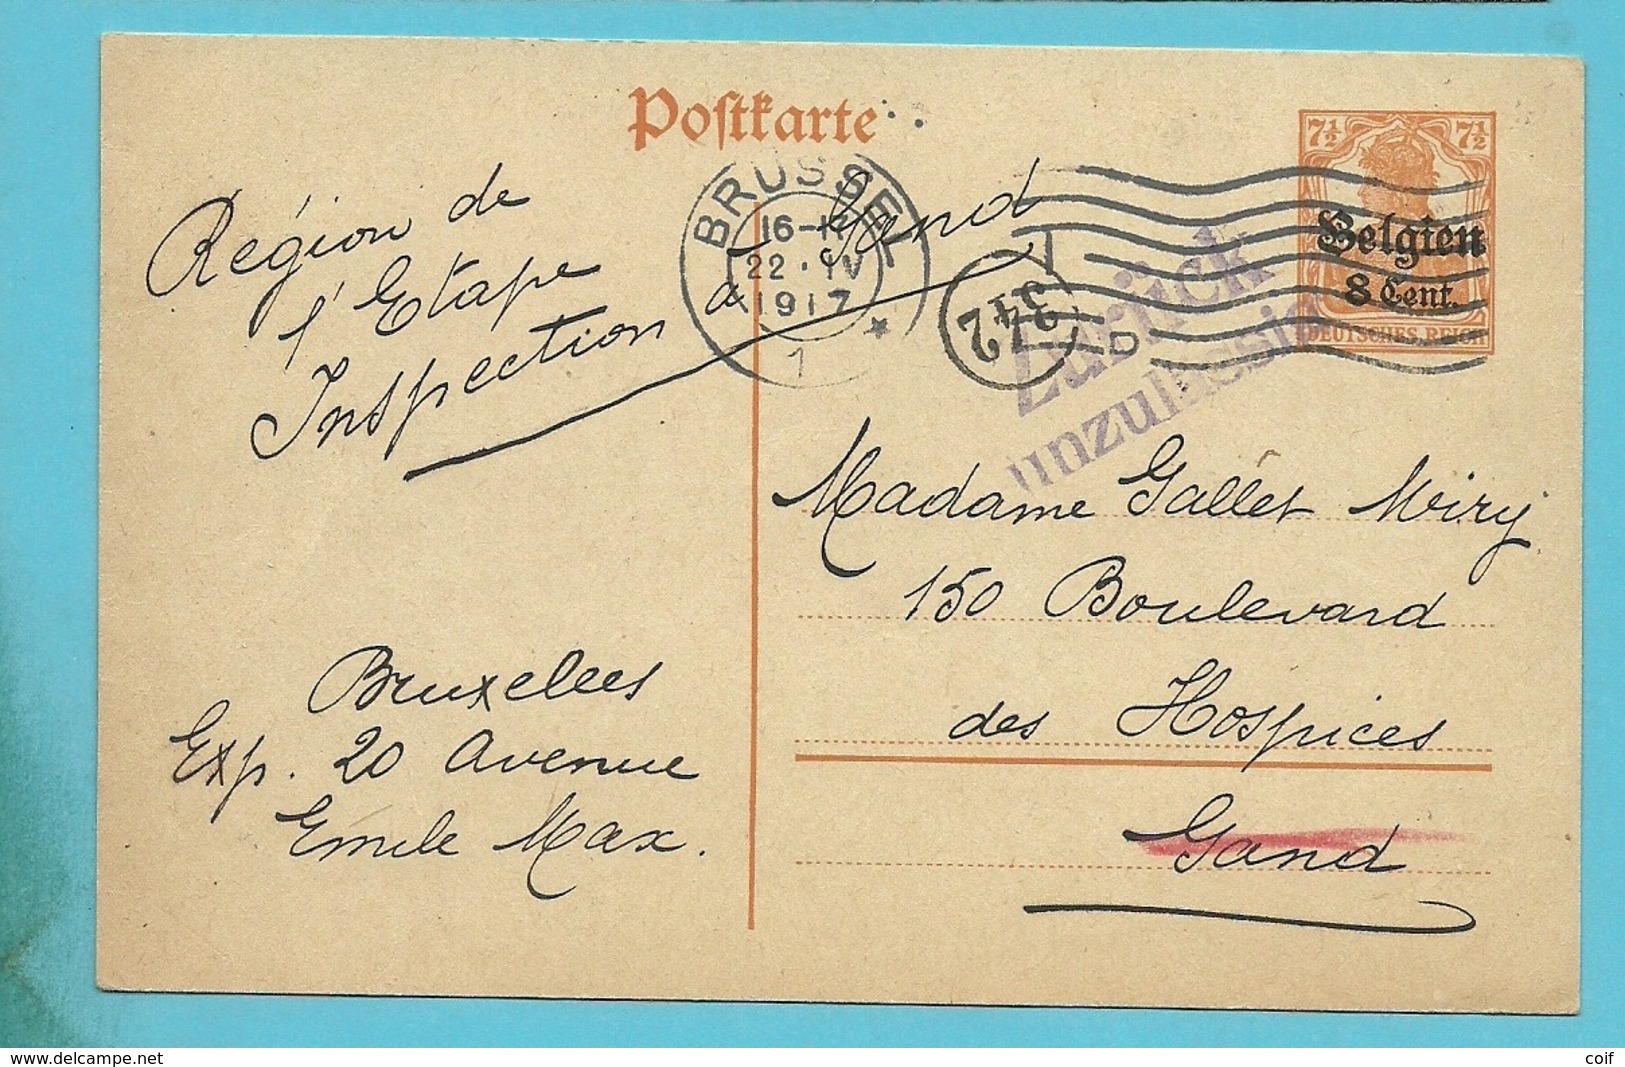 Postkarte
7½ 7½
Belgien
8 Cent.
DEUTSCHES REICH
BRUSSEL
16-17
22.IV
1917
1
*
342
D
Zurück
unzulässig
Région de
l'Etape
Inspection à Gand
Madame Gallet Miry
150 Boulevard
des Hospices
Gand
Bruxelles
Exp. 20 Avenue
Emile Max.
https://www.delcampe.net
coif